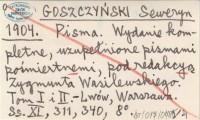 GOSZCZYŃSKI Seweryn
1904. Pisma. Wydanie kom-
pletne, uzupełnione pismami
pośmiertnemi, pod redakcyą
Zygmunta Wasilewskiego.
Tom I i II. - Lwów, Warszawa.
Ss. XI, 311, 340, 8º.